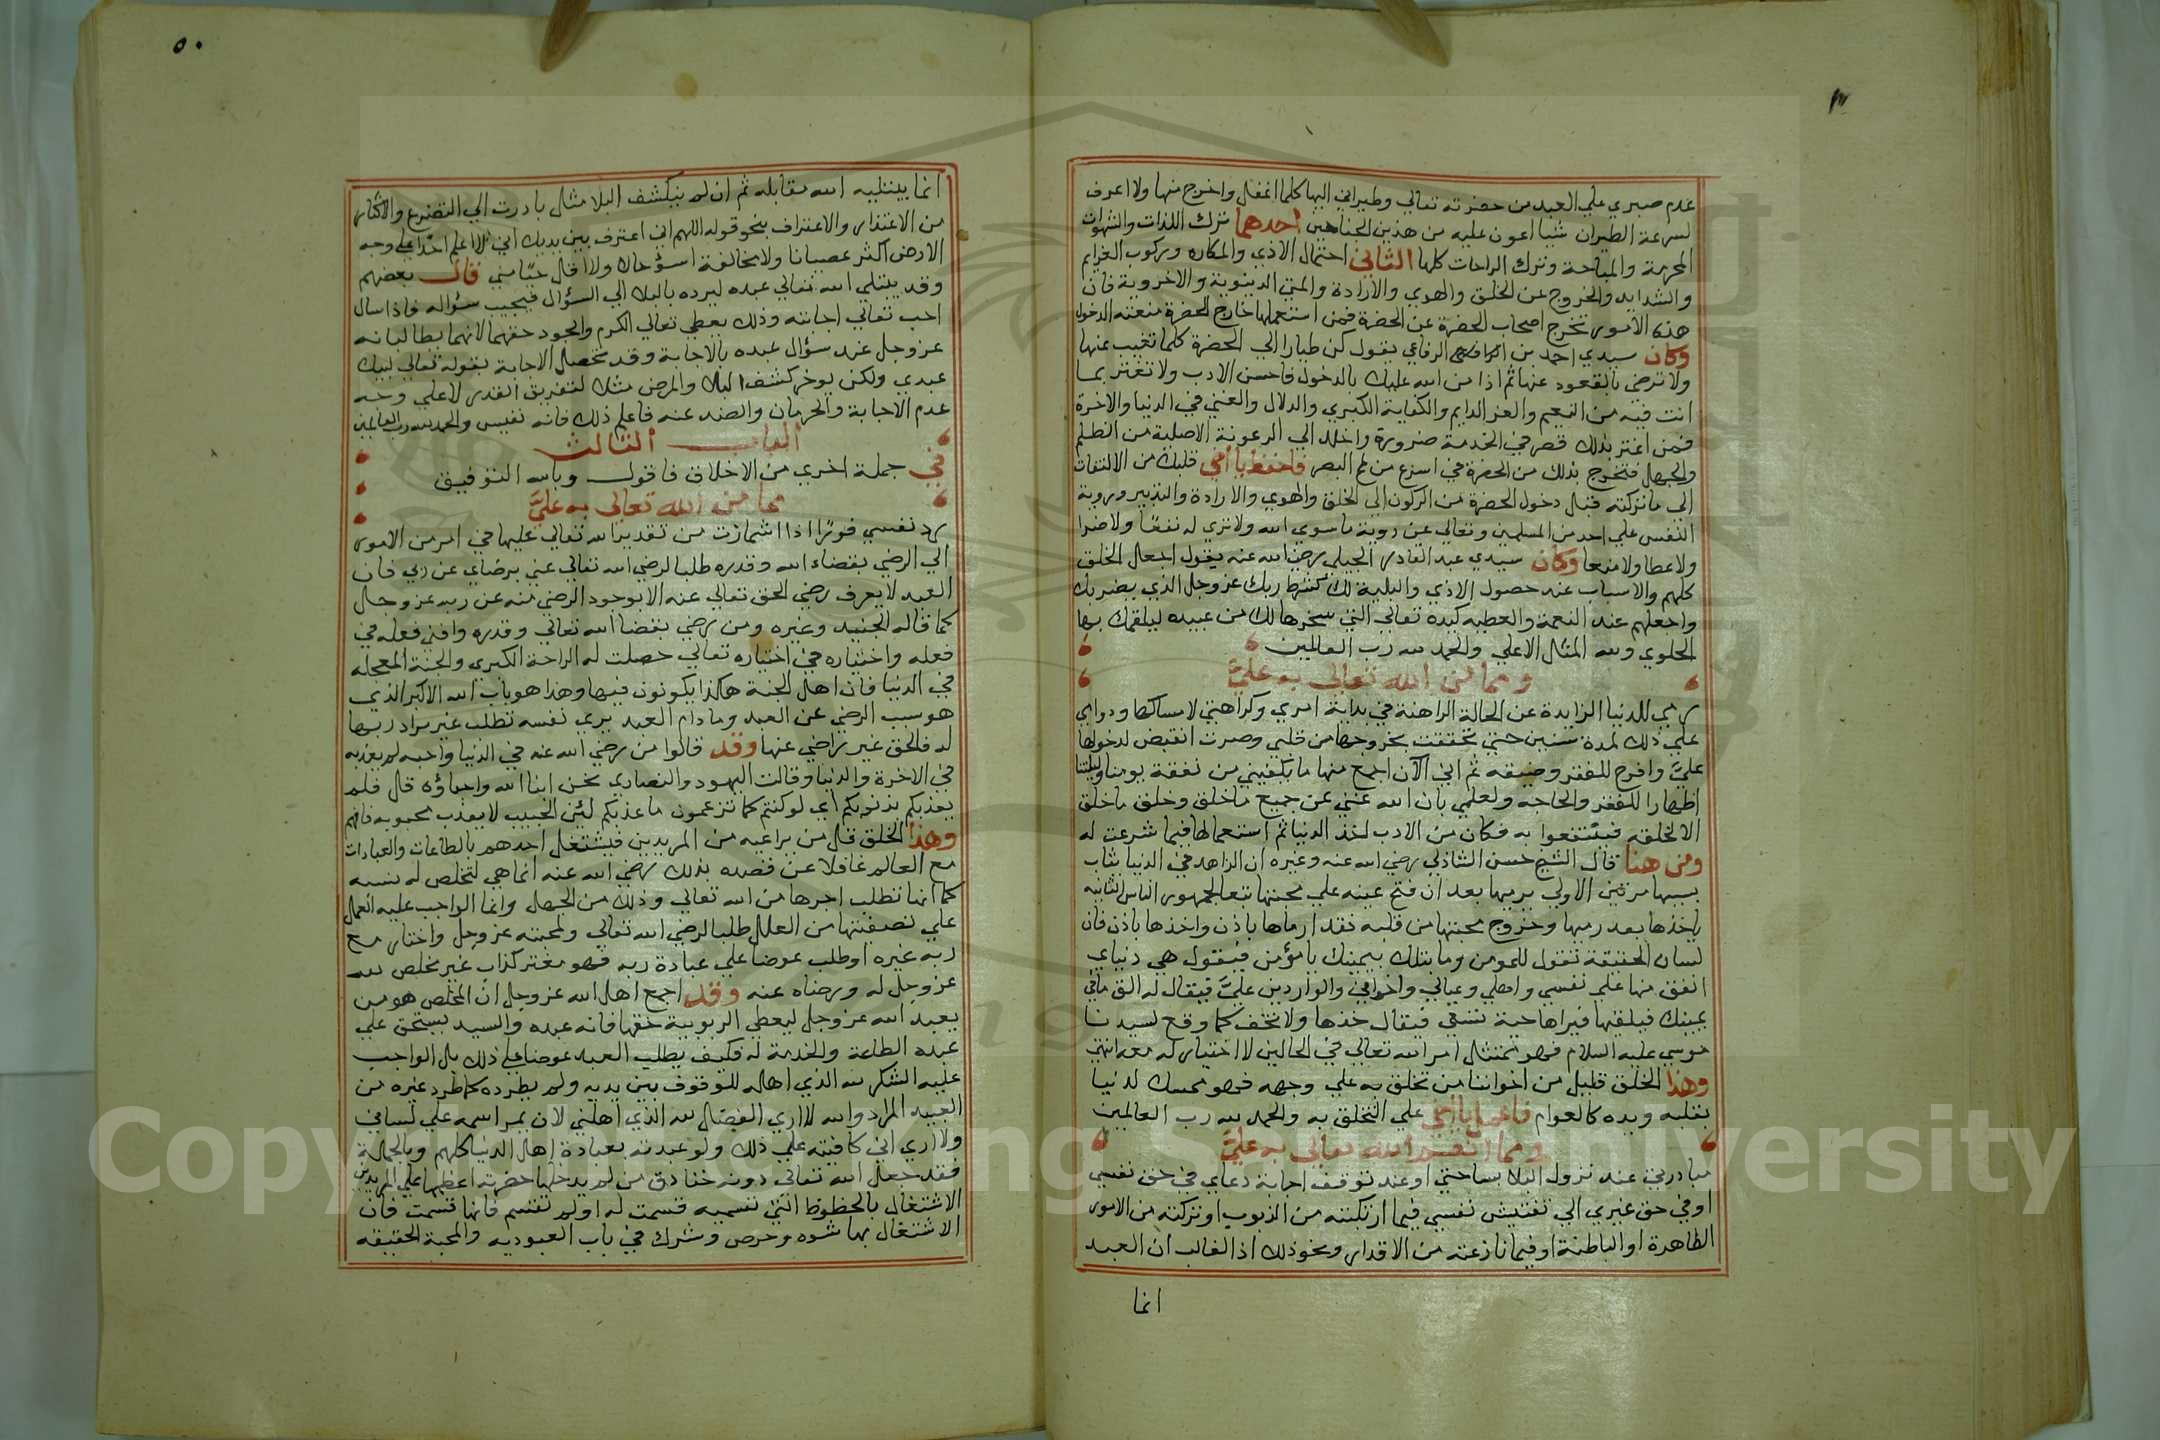 عدم صبري علي البعد من حضرته تعالي وطيراني اليها كلما انغفل واخرج منها ولا اعرف
لسرعة الطيران شيا اعون عليه من هذين الجناحين احدهما ترك اللذات والشهوات
المحرمة والمباحة وترك الراحات كلها الثاني احتمال الاذي والمكاره وركوب العزايم
والشدايد والخروج عن الخلق والهوي والارادة والمني الدنيوية والاخروية فان
هذه الامور تخرج اصحاب الحضرة عن الحضرة فمن استعملها خارج الحضرة منعته الدخول
وكان سيدي احمد بن الرفاعي يقول كن طيارا الي الحضرة كلما تغيب عنها
ولا ترضي بالقعود عنها ثم اذا من الله عليك بالدخول فاحسن الادب ولا تغتر بما
انت فيه من النعيم والعز الدايم والكفاية الكبري والدلال والغني في الدنيا والاخرة
فمن اغتر بذلك قصر في الخدمة ضرورة واخلد الي الرعونة الاصلية من الظلم
والجهل فتخرج بذلك من الحضرة في اسرع من لمح البصر فاحفظ يا اخي قلبك من الالتفات
الي ما تركته قبل دخول الحضرة من الركون الي الخلق والهوي والارادة والتدبير وروية
النفس علي احد من المسلمين وتعالي عن روية ما سوي الله ولا تري له نفعا ولا ضرا
ولا عطا ولا منعا وكان سيدي عبد القادر الجيلي رضي الله عنه يقول اجعل الخلق
كلهم والاسباب عند حصول الاذي والبلية لك كسوط ربك عز وجل الذي يضربك
واجعلهم عند النعمة والعطيه كيده تعالي التي سخرها لك من عبيده ليلقمك بها
الحلوي ولله المثل الاعلي والحمد لله رب العالمين
ومما من الله تعالي به علي
رمي للدنيا الزايدة عن الحالة الراهنة في بداية امري وكراهتي لامساكها ودوامي
علي ذلك لمدة سنين حتي تحققت بخروجها من قلبي وصرت انقبض لدخولها
علي وافرح للفقر وضيقه ثم اني الآن اجمع منها ما يكفيني من نفقة يومنا وليلتنا
اظهارا للفقر والحاجه ولعلمي بان الله غني عن جميع ما خلق وخلق ما خلق
الا لخلقه فينتفعوا به فكان من الادب اخذ الدنيا ثم استعمالها فيما شرعت له
ومن هنا قال الشيخ حسن الشاذلي رضي الله عنه وغيره ان الزاهد في الدنيا يثاب
بسببها مرتين الاولي برميها بعد ان فتح عينه علي محبتها تبعا لجمهور الناس الثانيه
ياخذها بعد رميها وخروج محبتها من قلبه فقد ارماها باذن واخذها باذن فان
لسان الحقيقة تقول للمومن وما بتلك بيمينك يا مؤمن فيقول هي دنياي
انفق منها علي نفسي واهلي وعيالي واخواني والواردين علي فيقال له الق ما في
يمينك فيلقيها فيراها حية تسعي فيقال خذها ولا تخف كما وقع لسيدنا
موسي عليه السلام فهو ممتثل امر الله تعالي في الحالين لا اختيار له معه انتهي
وهذا الخلق قليل من اخواننا من تخلق به علي وجهه فهو ممسك لدنيا
بقلبه ويده كالعوام فاعمل يا اخي علي التخلق به والحمد لله رب العالمين
ومما انعم الله تعالي به علي
مبادرتي عند نزول البلا بساحتي او عند توقف اجابة دعاي في حق نفسي
او في حق غيري الي تفتيش نفسي فيما ارتكبته من الذنوب او تركته من الامور
الظاهرة او الباطنة او فيما نازعته من الاقدار ونحو ذلك اذ الغالب ان العبد
انما
٥٠
انما يبتليه الله مقابله ثم ان لم ينكشف البلا مثلا بادرت الي التضرع والاكثار
من الاعتذار والاعتراف بنحو قوله اللهم اني اعترف بين يديك اني لا اعلم احدا علي وجه
الارض اكثر عصيانا ولا مخالفة اسؤ حالا ولا اقل حيا مني قال بعضهم
وقد يبتلي الله تعالي عبده ليرده بالبلا الي السؤال فيجيب سؤاله فاذا سال
احب تعالي اجابته وذلك يعطي تعالي الكرم والجود حقهما لانهما يطالبانه
عز وجل عند سؤال عبده بالاجابة وقد تحصل الاجابة بقوله تعالي لبيك
عبدي ولكن يوخر كشف البلا والمرض مثلا لتفريق القدر لا علي وجه
عدم الاجابة والحرمان والصد عنه فاعلم ذلك فانه نفيس والحمد لله رب العالمين
الباب الثالث
في جملة اخري من الاخلاق فاقول وبالله التوفيق
مما من الله تعالي به علي
رد نفسي فورا اذا اشمازت من تقدير الله تعالي عليها في امر من الامور
الي الرضي بقضاء الله وقدره طلبا لرضي الله تعالي عني برضاي عن ربي فان
العبد لا يعرف رضي الحق تعالي عنه الا بوجود الرضي منه عن ربه عز وجل
كما قاله الجنيد وغيره ومن رضي بقضا الله تعالي وقدره وافني فعله في
فعله واختياره في اختياره تعالي حصلت له الراحة الكبري والجنة المعجله
في الدنيا فان اهل الجنة هكذا يكونون فيها وهذا هو باب الله الاكبر الذي
هو سبب الرضي عن العبد وما دام العبد يري نفسه تطلب غير مراد ربها
له فالحق غير راضي عنها وقد قالوا من رضي الله عنه في الدنيا واحبه لم يعذبه
في الاخرة والدنيا وقالت اليهود والنصاري نحن ابنا الله واحباؤه قل فلم
يعذبكم بذنوبكم اي لو كنتم كما تزعمون ما عذبكم لئن الحبيب لا يعذب محبوبه فافهم
وهذا الخلق قل من يراعيه من المريدين فيشتغل احدهم بالطاعات والعبادات
مع العالم غافلا عن قصده بذلك رضي الله عنه انما هي لتخلص له نفسه
كما انها تطلب اجرها من الله تعالي وذلك من الجهل وانما الواجب عليه العمل
علي تصفيتها من العلل طلبا لرضي الله تعالي ولمحبته عز وجل واختار مع
ربه غيره او طلب عوضا علي عبادة ربه فهو مغتر كذاب غير مخلص لله
عز وجل له ورضاه عنه وقد اجمع اهل الله عز وجل ان المخلص هو من
يعبد الله عز وجل ليعطي الربوبية حقها فانه عبده والسيد يستحق علي
عبده الطاعة والخدمة له فكيف يطلب العبد عوضا علي ذلك بل الواجب
عليه الشكر لله الذي اهله للوقوف بين يديه ولم يطرده كما طرد غيره من
العبيد المراد والله لا اري الفضل لله الذي اهلني لان يمر اسمه علي لساني
ولا اري اني كافيته علي ذلك ولو عبدته بعبادة اهل الدنيا كلهم وبالجملة
فقد جعل الله تعالي دونه خنادق من لم يدخلها حضرته اعظمها علي المريدين
الاشتغال بالحظوظ التي نفسيه قسمت له او لم تقسم فانها قسمت فان
الاشتغال بها شوه وحرص وشرك في باب العبوديه والمحبة الحقيقه
Copyright © King Saud University